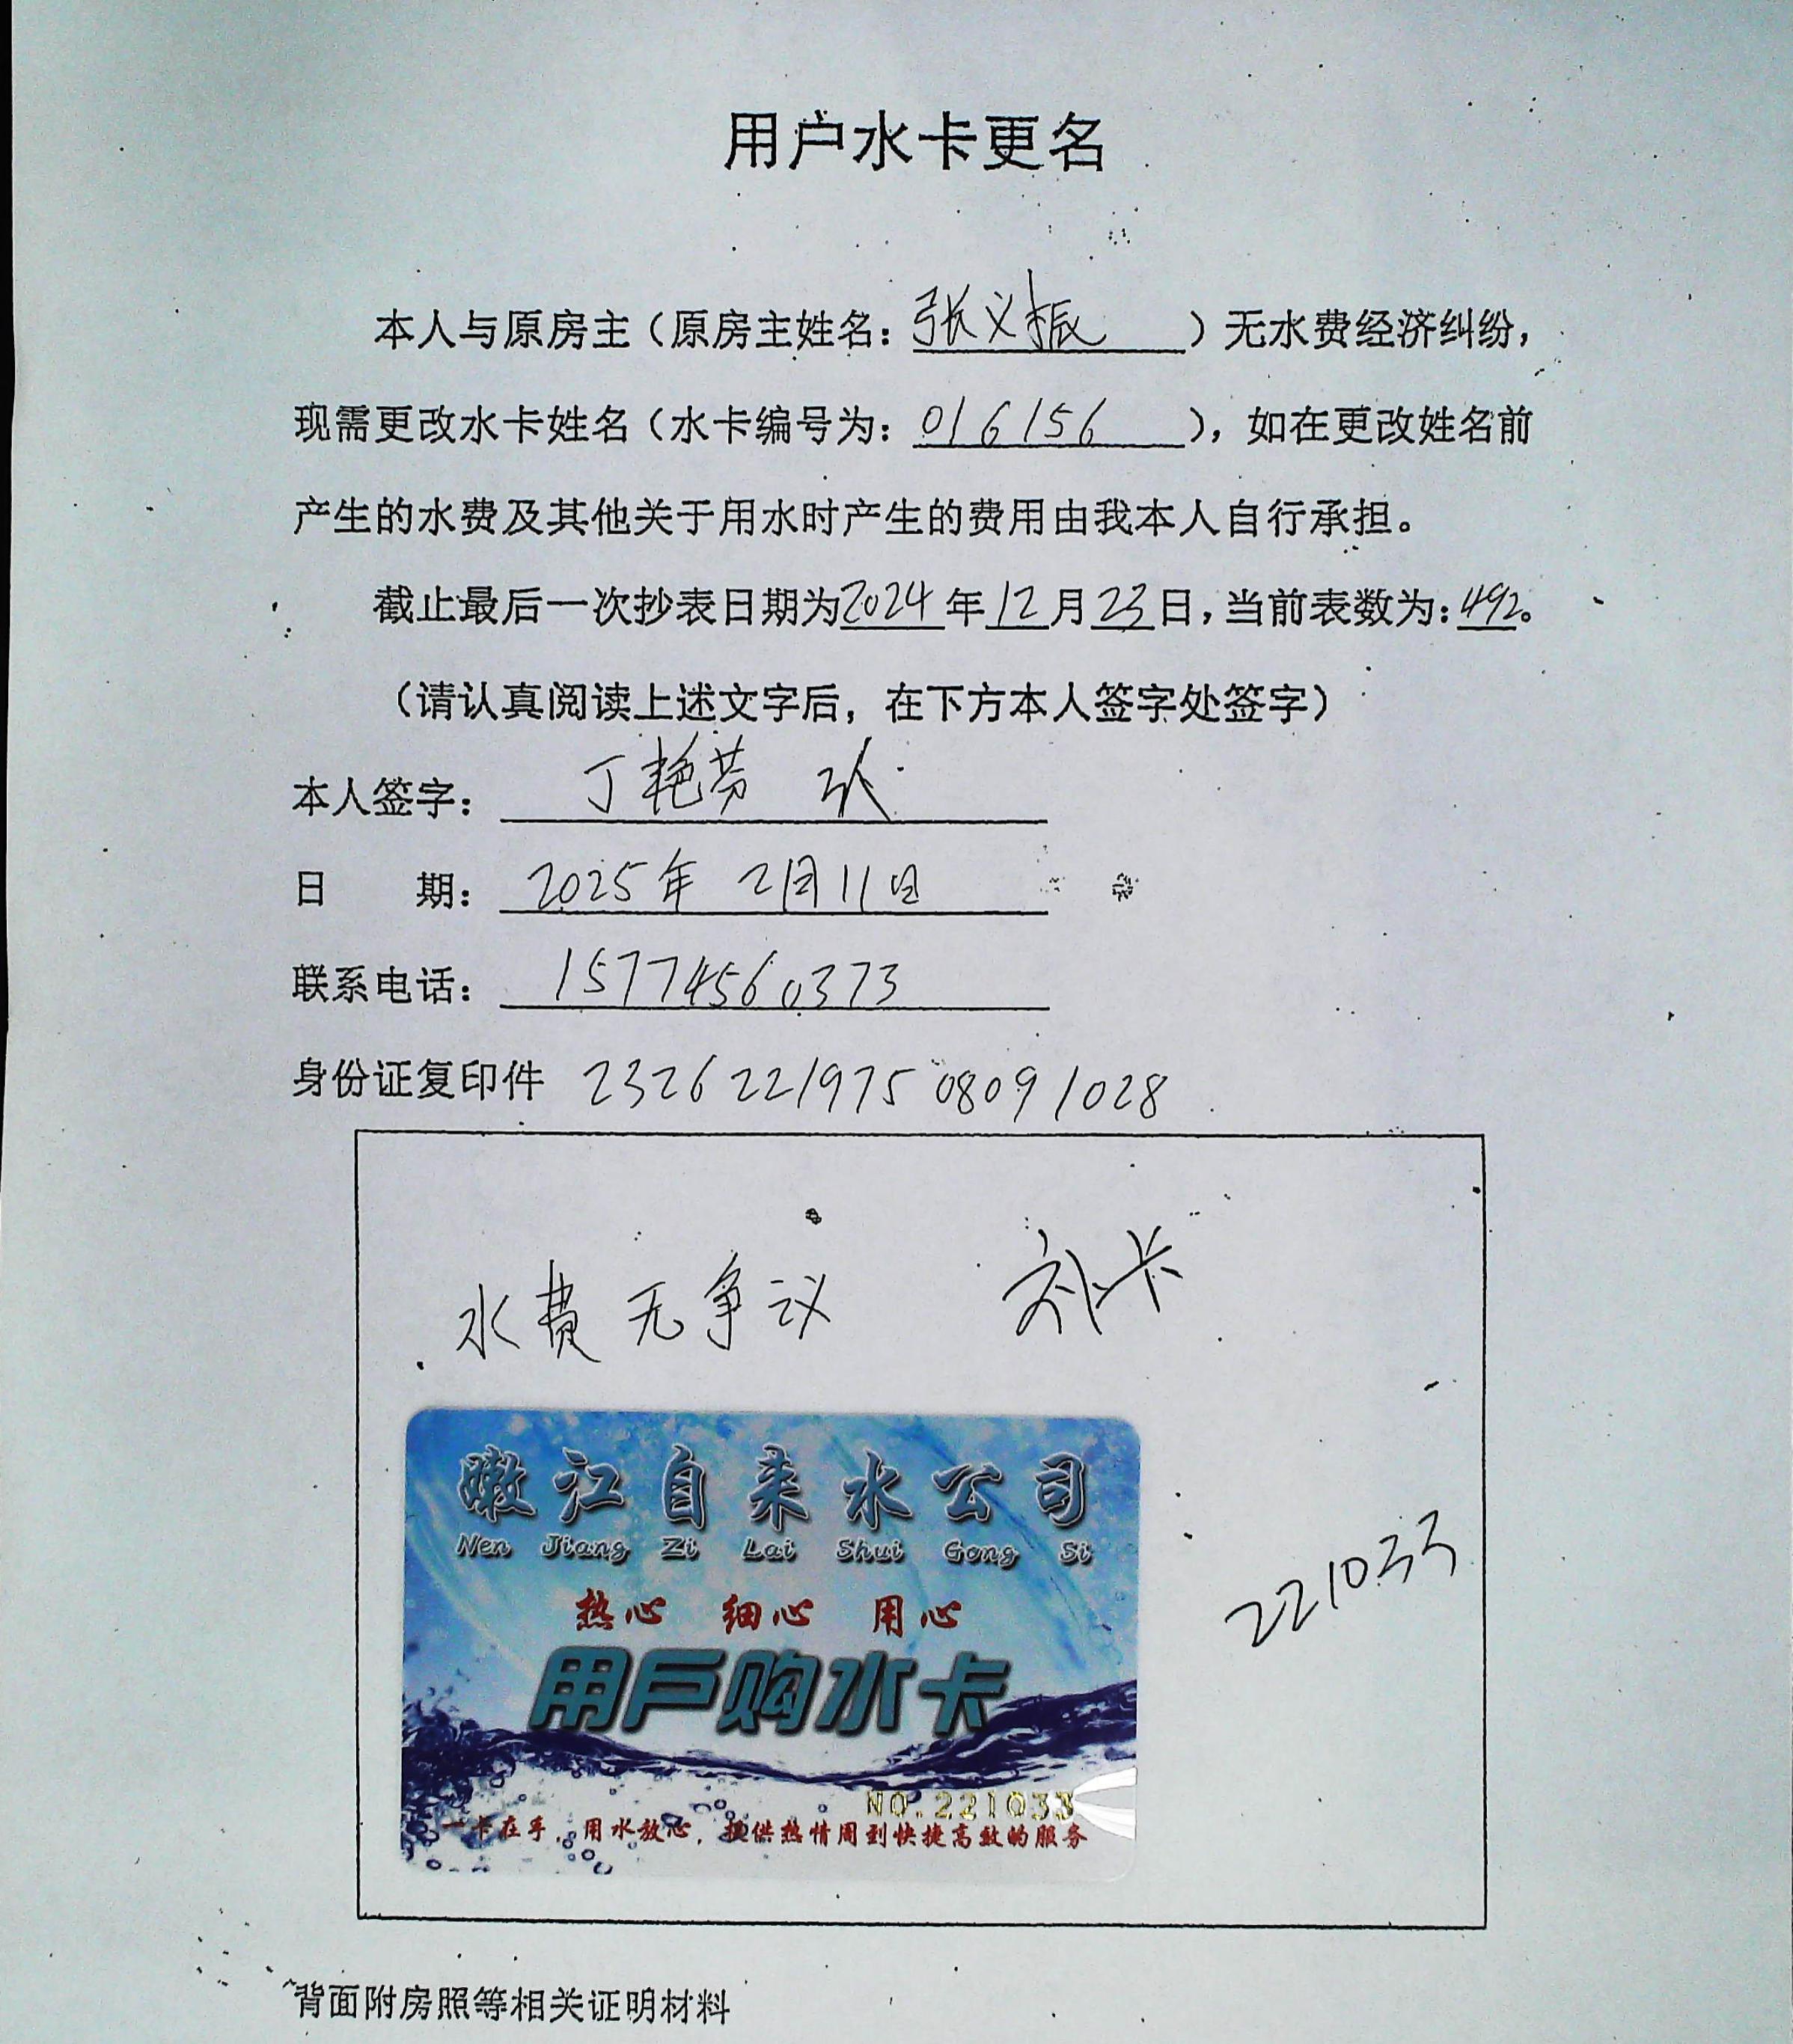 用户水卡更名
本人与原房主（原房主姓名：张义振）无水费经济纠纷，
现需更改水卡姓名（水卡编号为：016156），如在更改姓名前
产生的水费及其他关于用水时产生的费用由我本人自行承担。
截止最后一次抄表日期为2024年12月23日，当前表数为：492。
（请认真阅读上述文字后，在下方本人签字处签字）
本人签字：丁艳芬
日 期：2025年2月11日
联系电话：15774560373
身份证复印件 232622197508091028
水费无争议 补卡
嫩江自来水公司
Nen Jiang Zi Lai Shui Gong Si
热心 细心 用心
221033
用户购水卡
NO.221033
一卡在手，用水放心，提供热情周到快捷高效的服务
背面附房照等相关证明材料